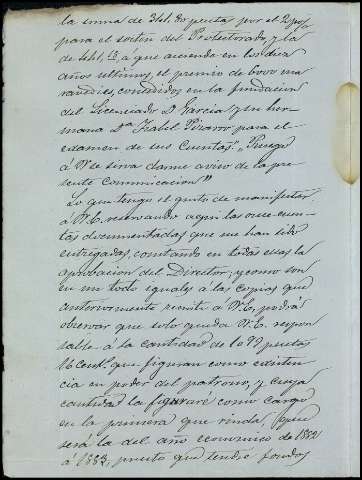 la suma de pesetas por el 2 p%
para el sosten del Protectorado, y la
de á que ascienda en los diez
años ultimos, el premio de 6000 ma
ravedises, concedidos en la fundacion
del Licenciado D. Garcia y su her
mana D.ª Isabel Pizarro para el
examen de sus Cuentas". "Ruego
á V. se sirva darme aviso de la pre
sente Comunicacion"
Lo que tengo el gusto de manifestar
á V.E. reservando aqui las once cuen
tas documentadas que me han sido
entregadas, constando en todas ellas la
aprobacion del Director; y como son
en un todo iguales á las copias que
anteriormente remiti á V.E, podrá
observar que solo queda V.E. respon
sable á la cantidad de 1099 pesetas
16 cent.s que figuran como existen
cia en poder del patrono, y cuya
cantidad la figuraré como cargo
en la primera que rinda, que
será la del año economico de 1882
á 1883, puesto que tendré fondos